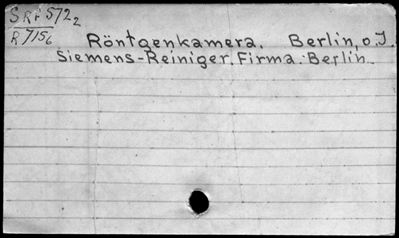 S Rö 572₂
R 7156
Röntgenkamera. Berlin, o.J.
Siemens-Reiniger. Firma. Berlin.